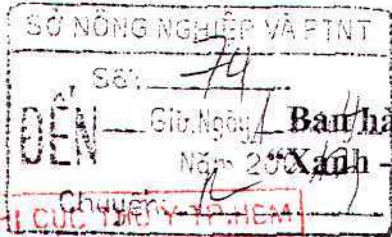 SỞ NÔNG NGHIỆP VÀ PTNT
Số: 74
ĐẾN
Giờ, Ngày
Ban hà
Năm 200
"Xanh -
Chuyển
CỤC THÚ Y TP.HCM